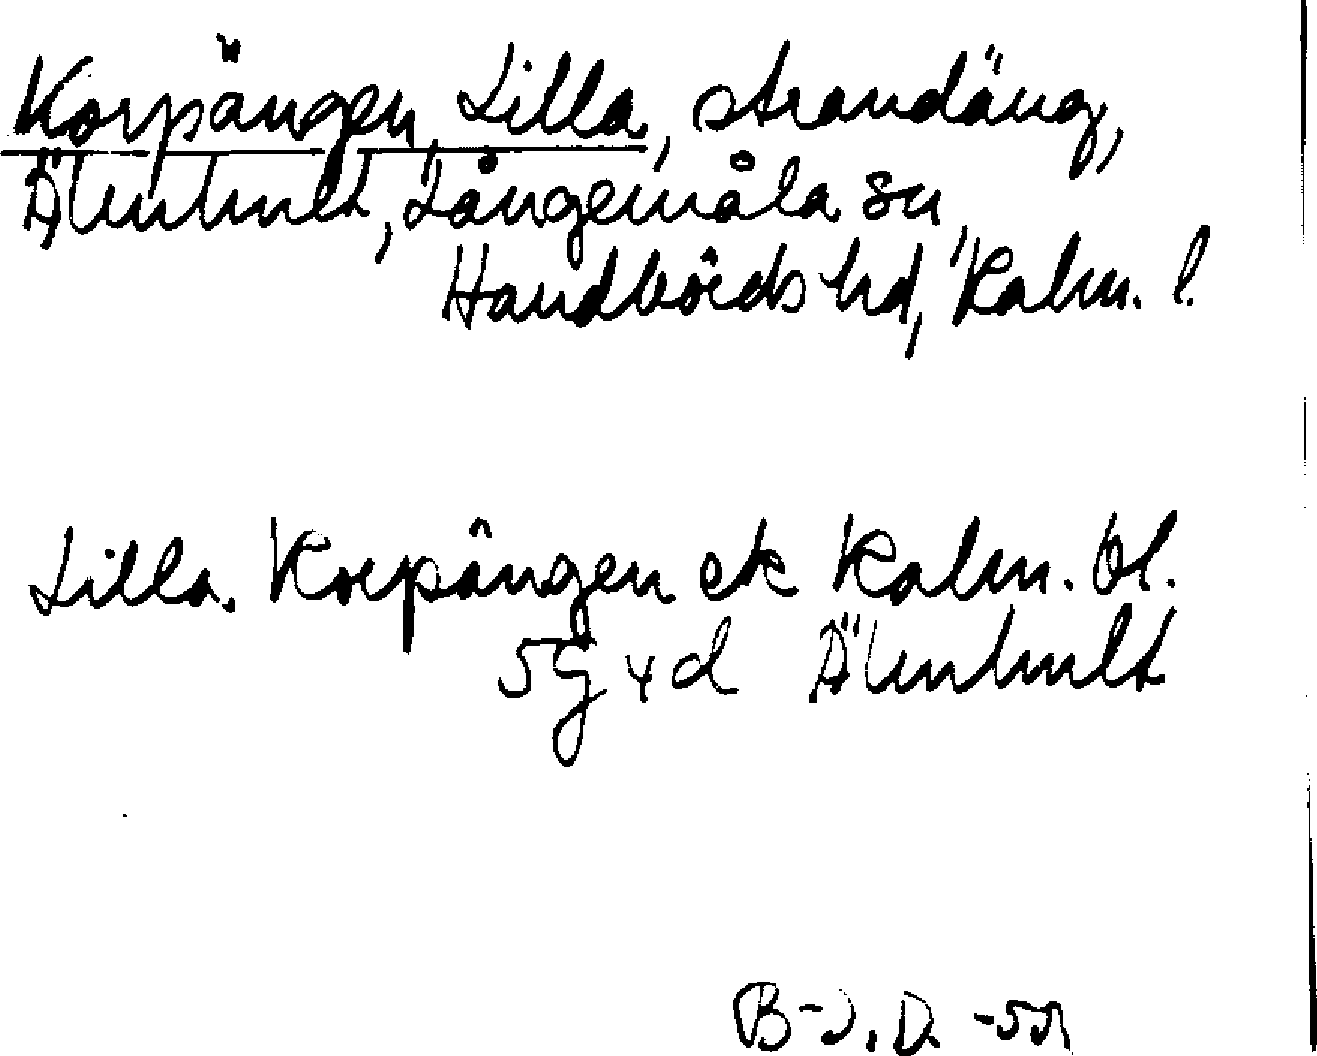 Korpängen, Lilla, strandäng,
Älmhult, Långemåla sn,
Handbörds hd, Kalm. l.
Lilla Korpängen ek Kalm. öl.
5g 4d Älmhult
B-J. D. -55